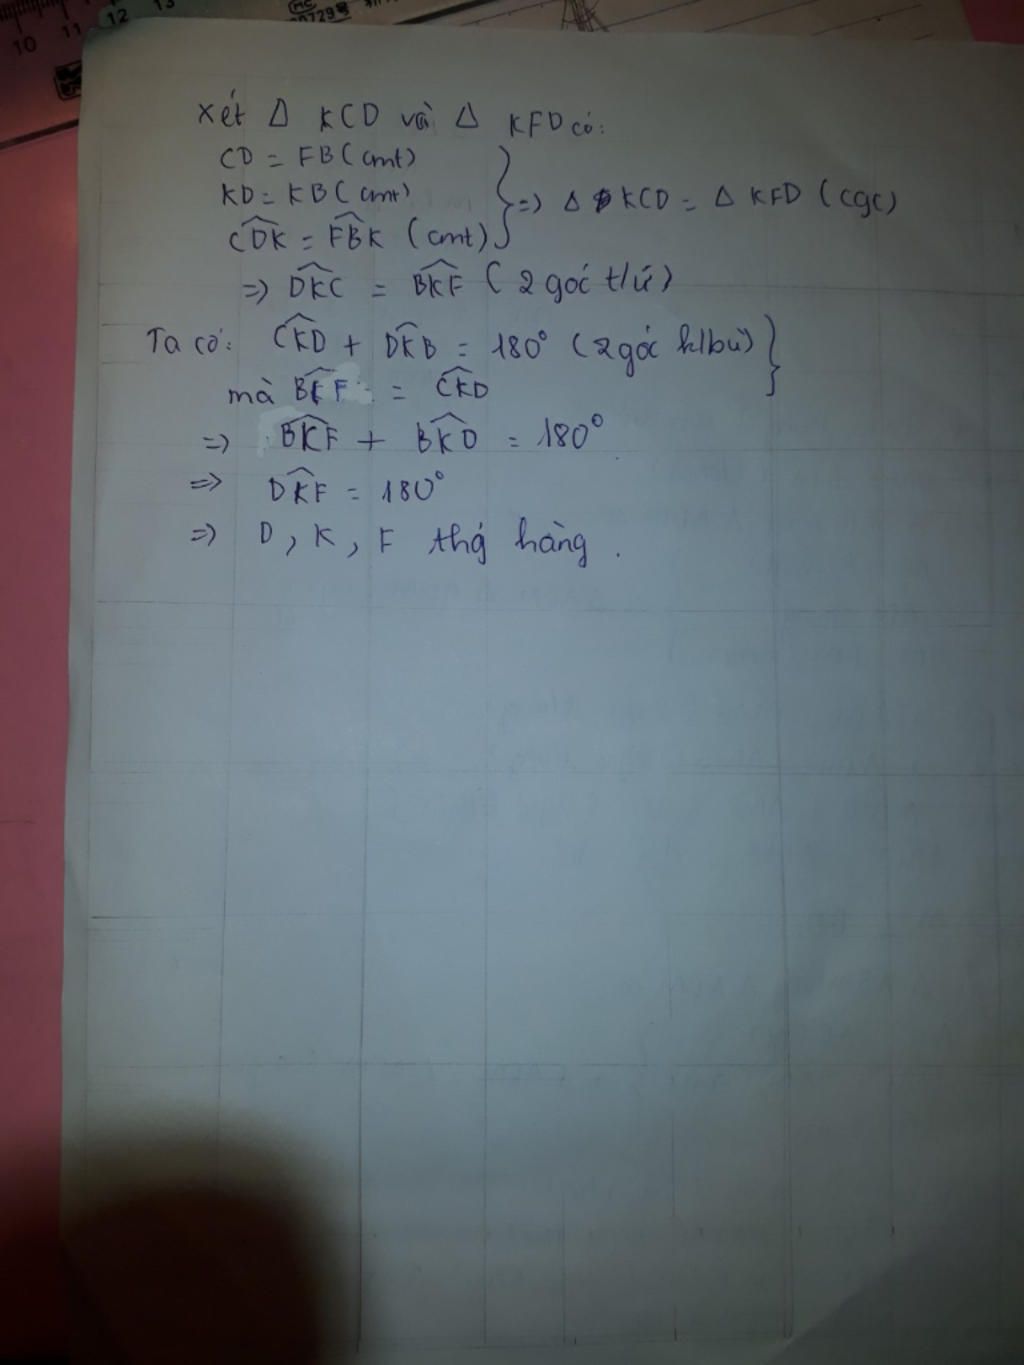 10 11 12 13
MC
00729
Xét Δ KCD và Δ KFD có:
CD = FB (cmt)
KD = KB (cmt) } => Δ KCD = Δ KFD (cgc)
\widehat{CDK} = \widehat{FBK} (cmt)
=> \widehat{DKC} = \widehat{BKF} (2 góc t/ứ)
Ta có: \widehat{CKD} + \widehat{DKB} = 180° (2 góc k/bù) }
mà \widehat{BKF} = \widehat{CKD}
=> \widehat{BKF} + \widehat{BKD} = 180°
=> \widehat{DKF} = 180°
=> D, K, F thg hàng.